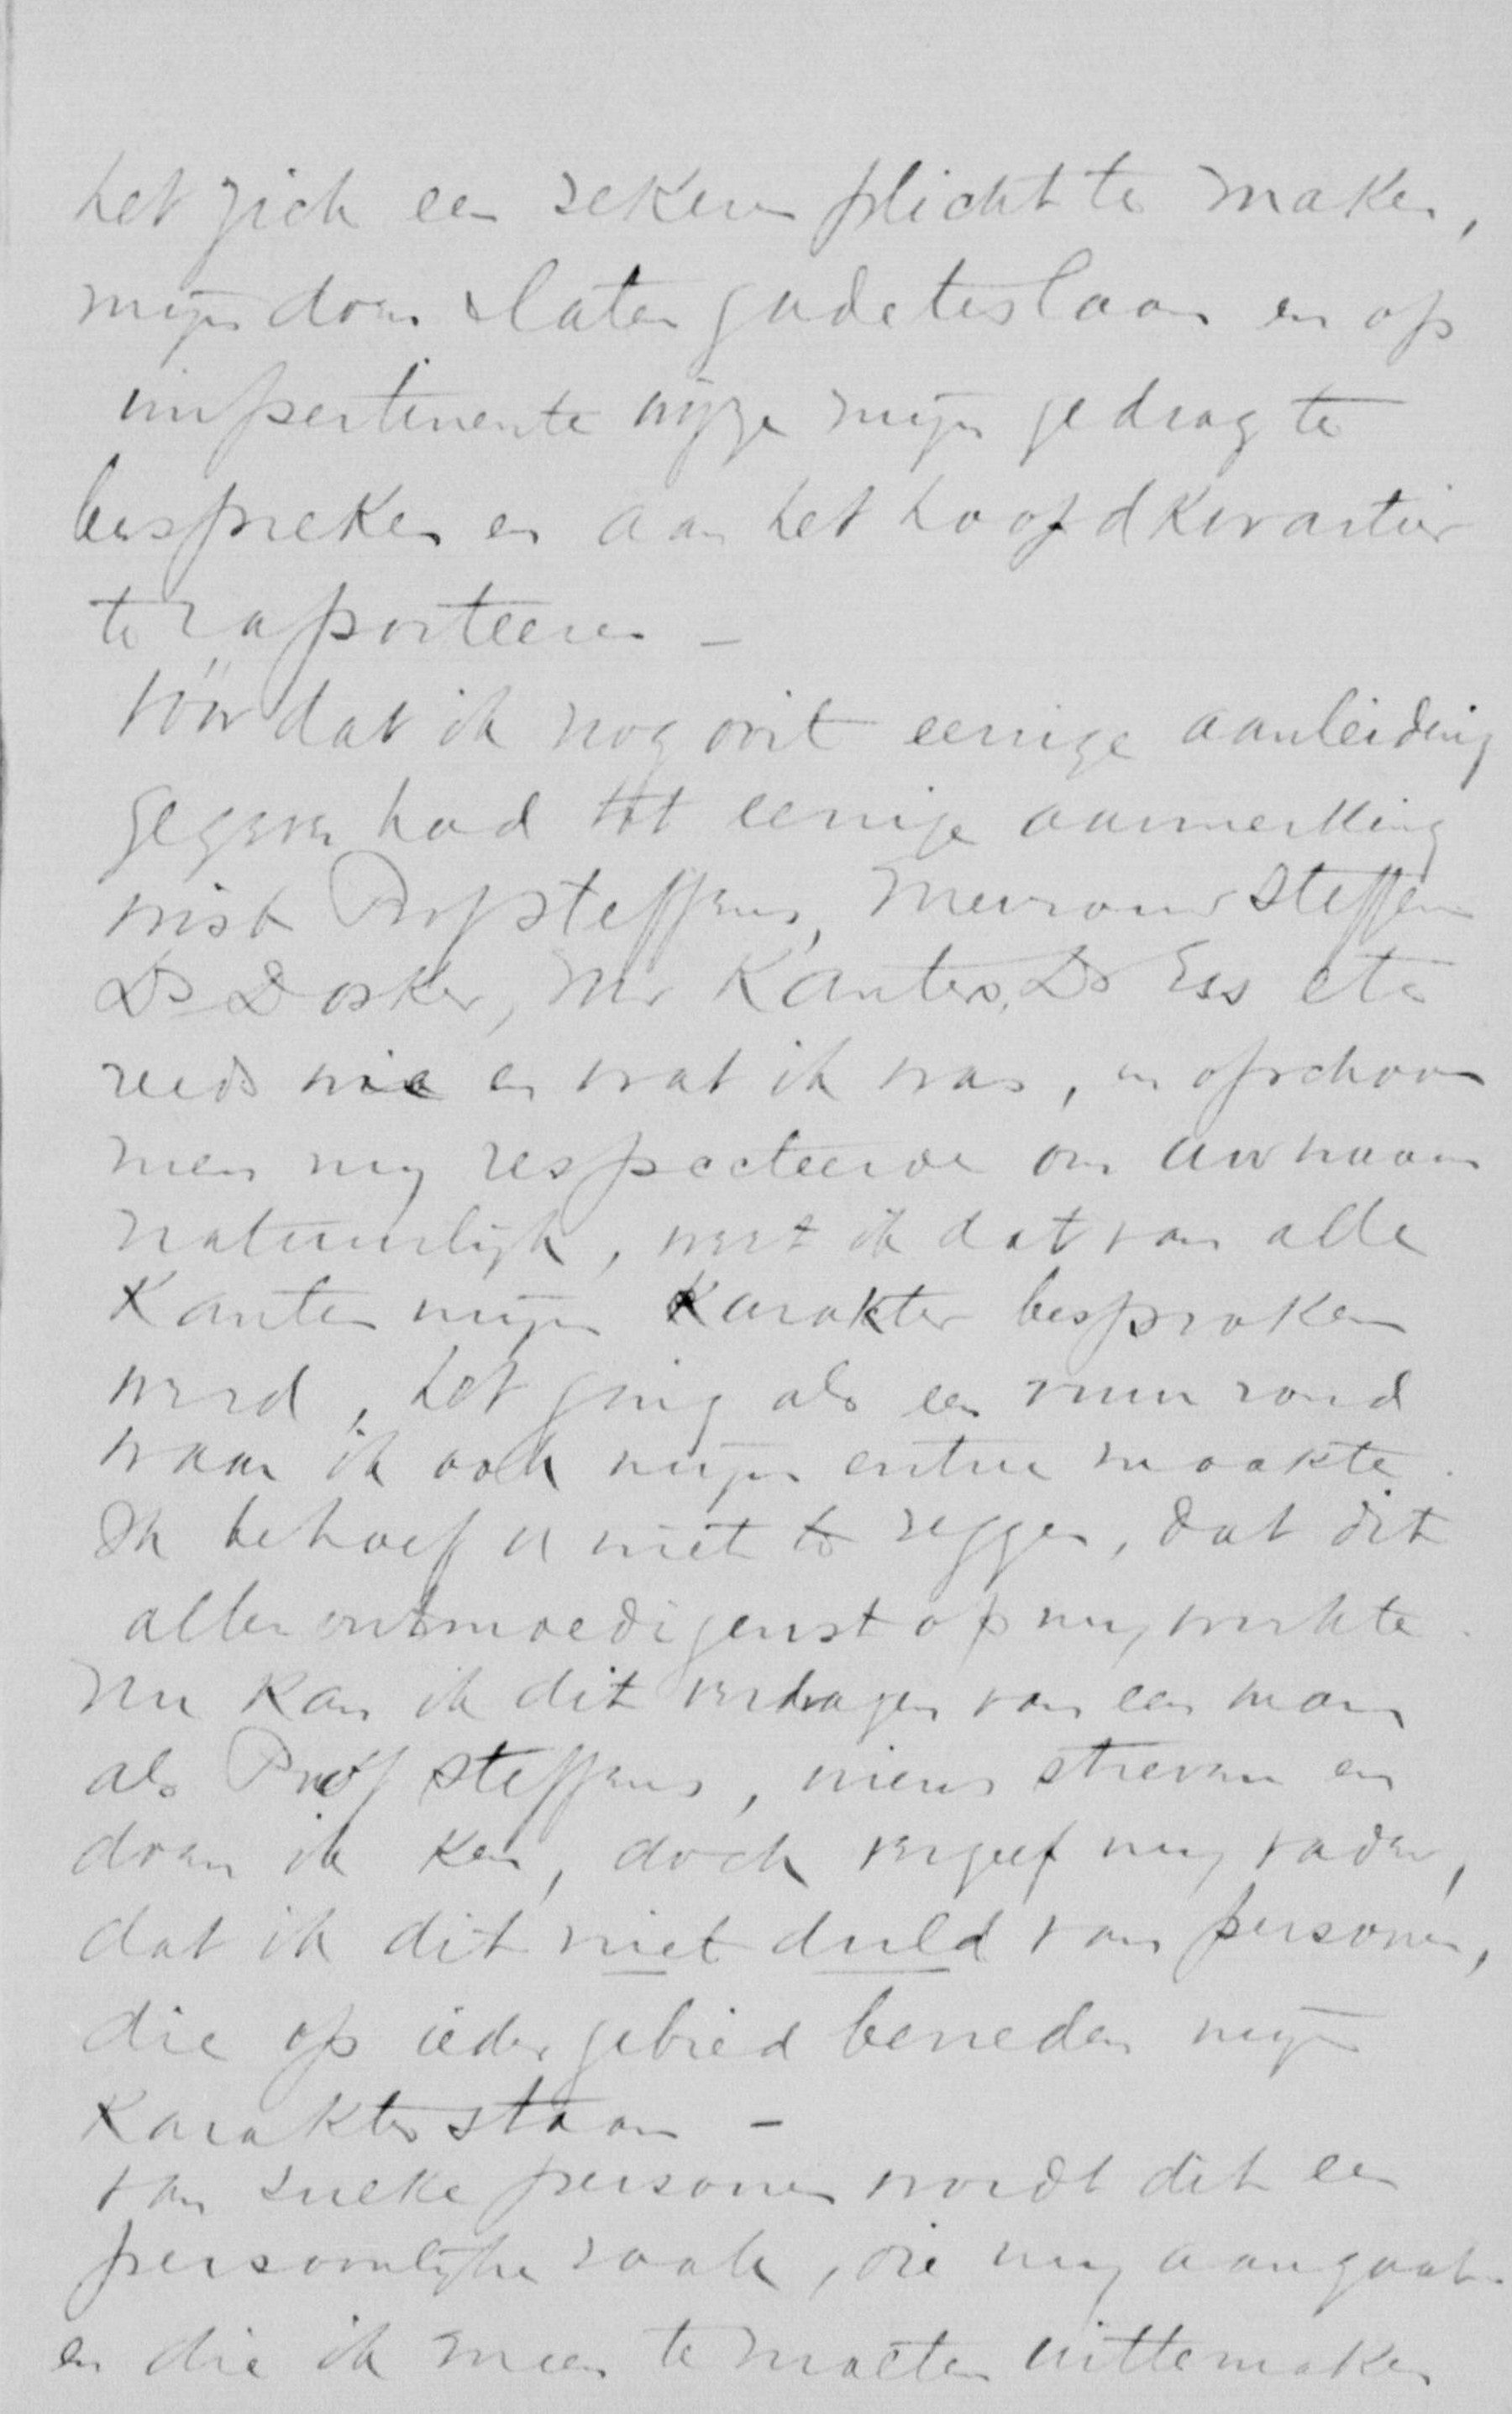 het zich een zekeren plicht te maken,
mijn doen & laten gade te slaan en op
impertinente wijze mijn gedrag te
bespreken en aan het hoofdkwartier
te raporteeren –
Vóór dat ik nog ooit eenige aanleiding
gegeven had tot eenige aanmerking
wist Prof Steffens, Mevrouw Steffens
Ds Dosker, Mr Kanters, Ds Ess etc
reeds wie en wat ik was, en ofschoon
men mij respecteerde om uw naam
natuurlijk, wist ik dat van alle
Kanten mijn Karakter besproken
werd, het ging als een vuur rond
waar ik ook mijn entree maakte.
Ik behoef u niet te zeggen, dat dit
allerontmoedigenst op mij werkte.
Nu kan ik dit verdragen van een man
als Prof Steffens, wiens streven en
doen ik ken, doch vergeef mij vader,
dat ik dit niet duld van personen,
die op ieder gebied beneden mijn
Karakter staan –
Van zulke personen wordt dit een
persoonlijke zaak, die mij aangaat.
en die ik meen te moeten uittemaken